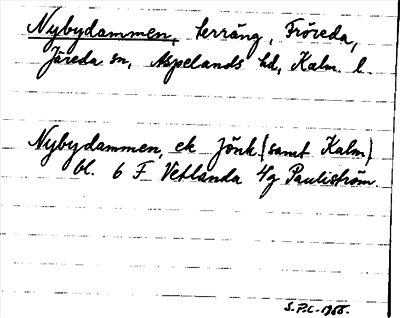 Nybydammen, terräng, Fröreda,
Järeda sn, Aspelands hd, Kalm. l.
Nybydammen, ek Jönk. (samt Kalm)
bl. 6 F Vetlanda 4g Pauliström.
S.P.C.-1955.